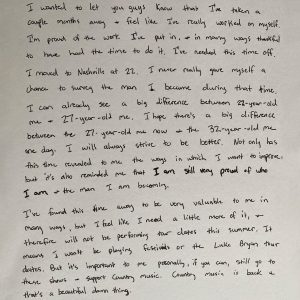 I wanted to let you guys know that I've taken a
couple months away & feel like I've really worked on myself.
I'm proud of the work I've put in, & in many ways thankful
to have had the time to do it. I've needed this time off.
I moved to Nashville at 22. I never really gave myself a
chance to survey the man I became during that time.
I can already see a big difference between 22-year-old
me & 27-year-old me. I hope there's a big difference
between the 27 year-old me now & the 32-year-old me
one day. I will always strive to be better. Not only has
this time revealed to me the ways in which I want to improve,
but it's also reminded me that I am still very proud of who
I am & the man I am becoming.
I've found this time away to be very valuable to me in
many ways, but I feel like I need a little more of it, &
therefore will not be performing tour dates this summer. It
means I won't be playing festivals or the Luke Bryan tour
dates. But it's important to me personally, if you can, still go to
these shows & support Country music. Country music is back &
that's a beautiful damn thing.